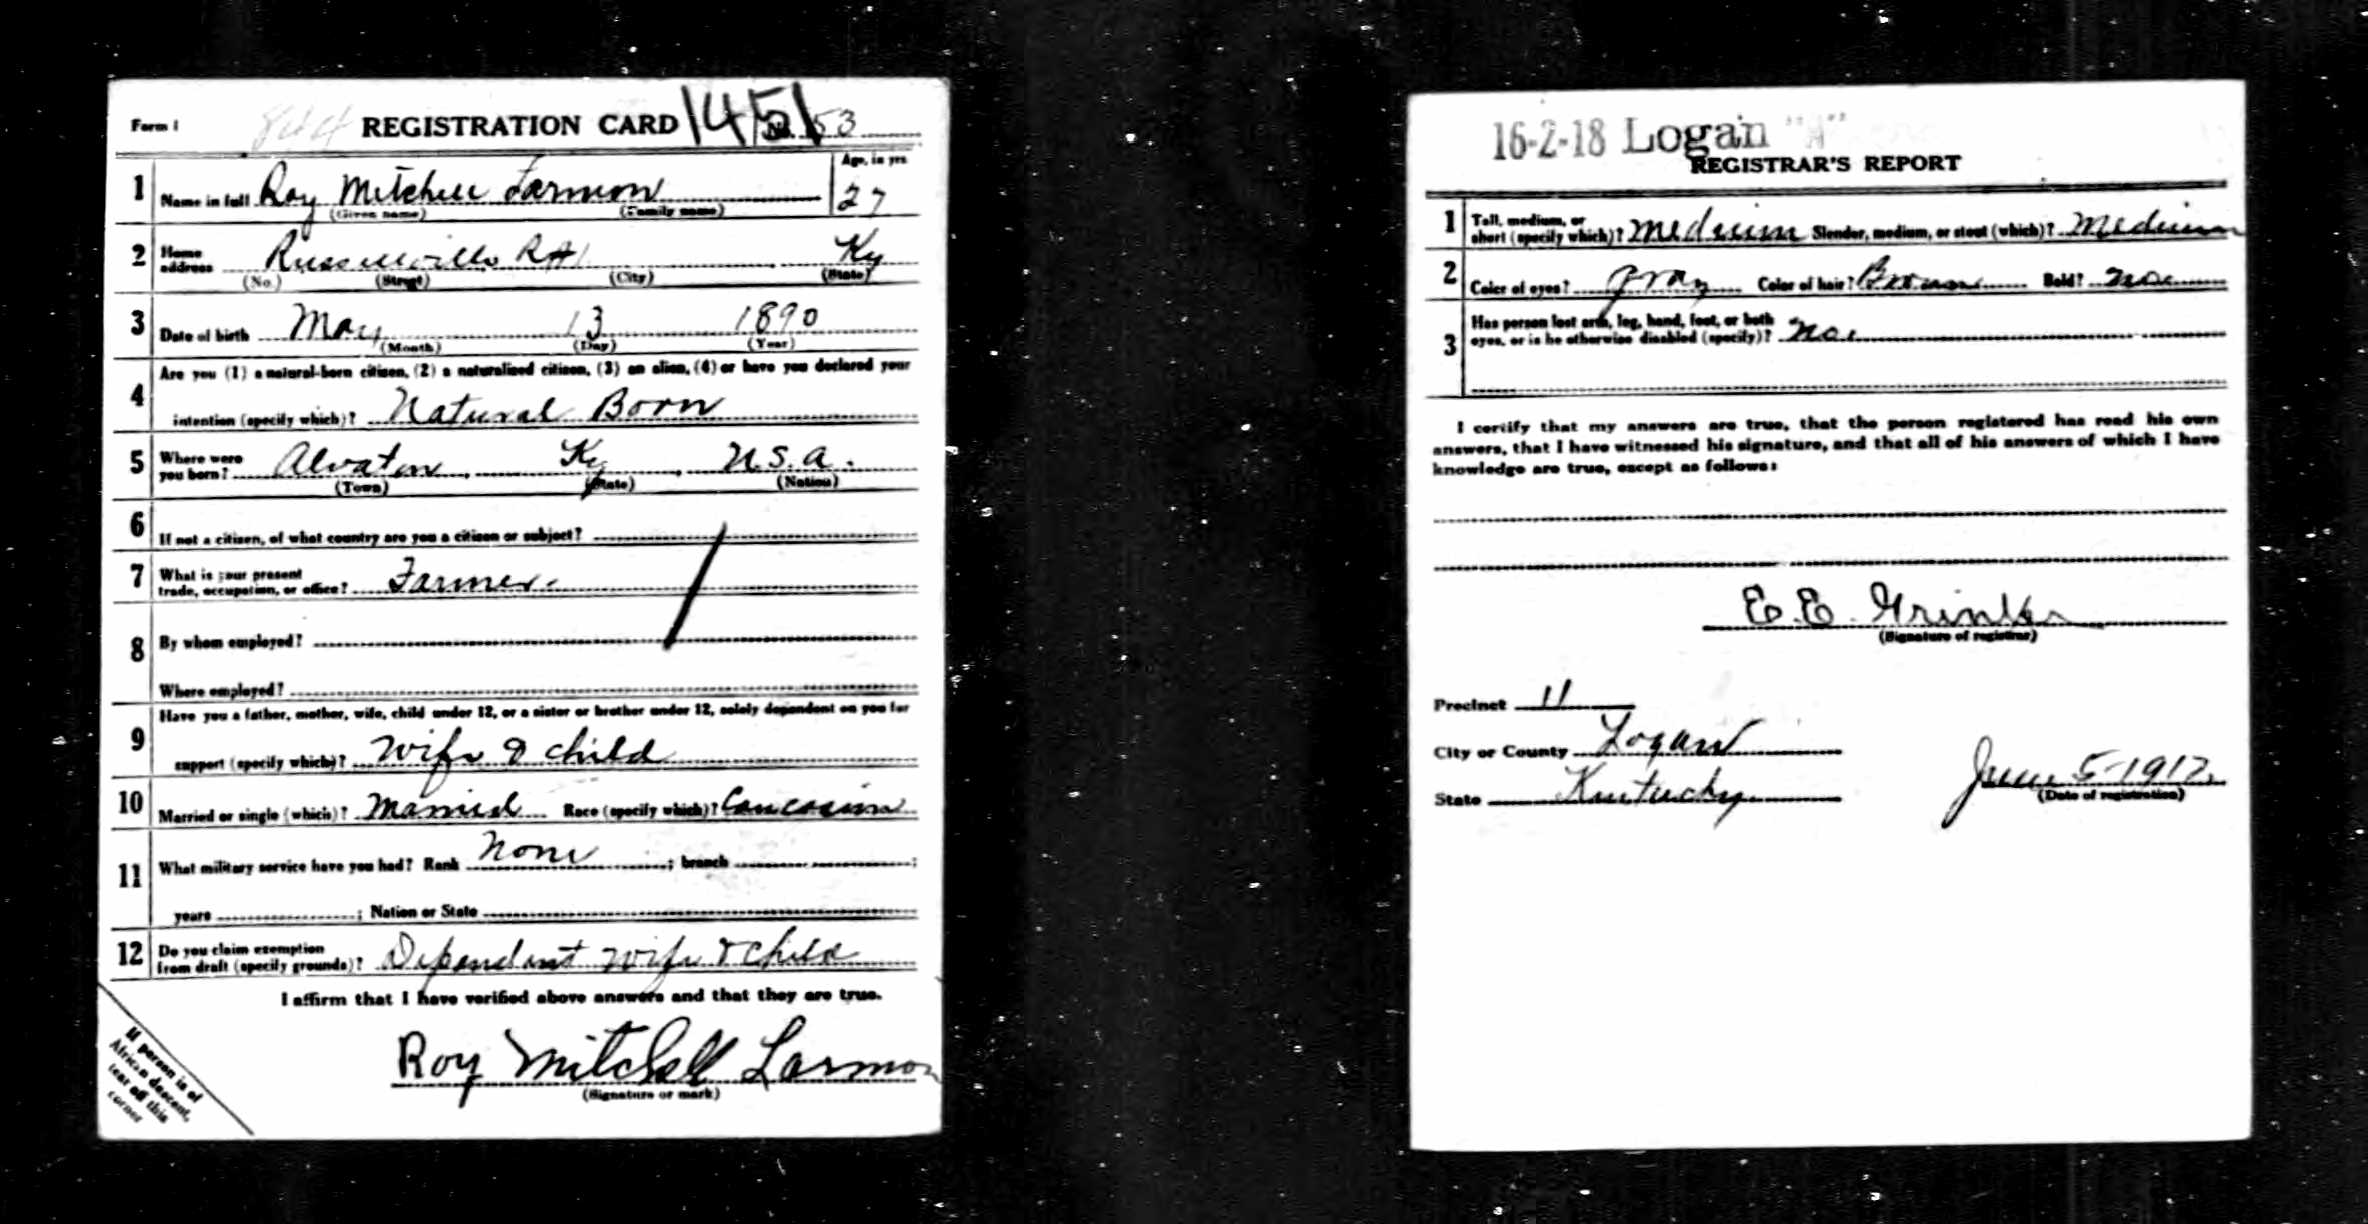 Form 1 844 REGISTRATION CARD 1451 No. 53
1 Name in full Roy Mitchell Larmon Age, in yrs. 27
(Given name) (Family name)
2 Home address Russellville R#1 Ky
(No.) (Street) (City) (State)
3 Date of birth May 13 1890
(Month) (Day) (Year)
4 Are you (1) a natural-born citizen, (2) a naturalized citizen, (3) an alien, (4) or have you declared your
intention (specify which)? Natural Born
5 Where were you born? Alvaton, Ky, U.S.A.
(Town) (State) (Nation)
6 If not a citizen, of what country are you a citizen or subject?
7 What is your present
trade, occupation, or office? Farmer
8 By whom employed?
Where employed?
9 Have you a father, mother, wife, child under 12, or a sister or brother under 12, solely dependent on you for
support (specify which)? Wife & child
10 Married or single (which)? Married Race (specify which)? Caucasian
11 What military service have you had? Rank None ; branch ;
years ; Nation or State
12 Do you claim exemption
from draft (specify grounds)? Dependant wife & child
I affirm that I have verified above answers and that they are true.
Roy Mitchell Larmon
(Signature or mark)
If person is of
African descent,
tear off this
corner
16-2-18 Logan "A"
REGISTRAR'S REPORT
1 Tall, medium, or
short (specify which)? Medium Slender, medium, or stout (which)? Medium
2 Color of eyes? Gray Color of hair? Brown Bald? no
3 Has person lost arm, leg, hand, foot, or both
eyes, or is he otherwise disabled (specify)? No.
I certify that my answers are true, that the person registered has read his own
answers, that I have witnessed his signature, and that all of his answers of which I have
knowledge are true, except as follows:
E. E. Grinter
(Signature of registrar)
Precinct 11
City or County Logan
State Kentucky June 5-1917
(Date of registration)